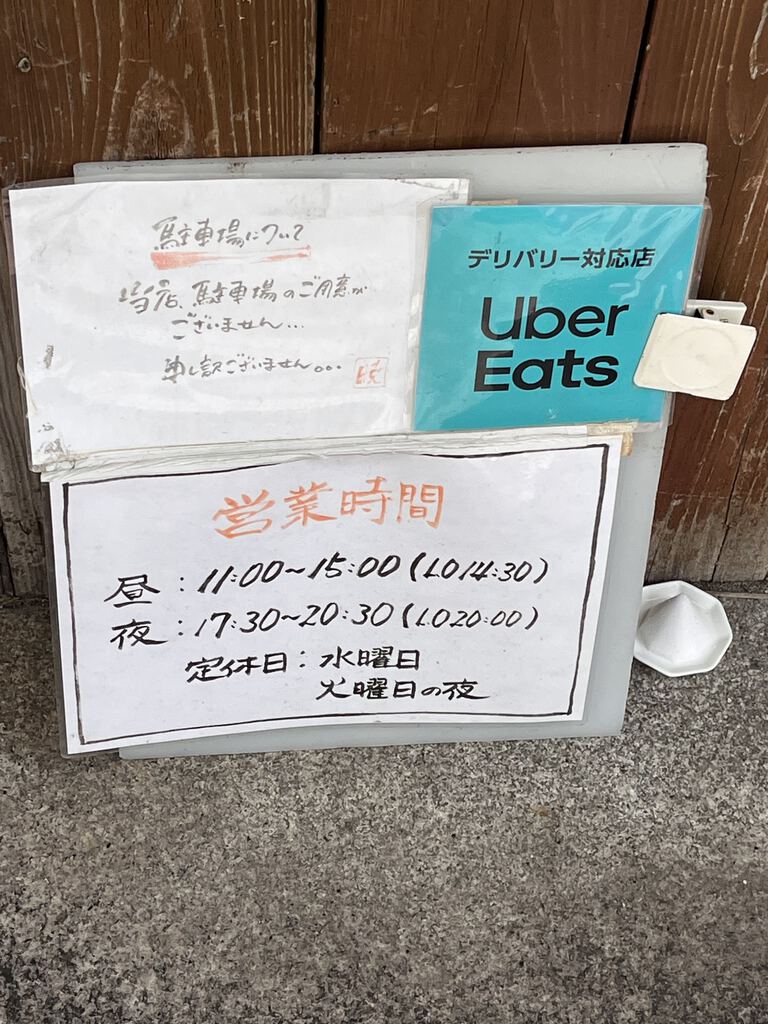 駐車場について
当店、駐車場のご用意が
ございません...
申し訳ございません。。。
デリバリー対応店
Uber
Eats
営業時間
昼：11:00～15:00(LO14:30)
夜：17:30～20:30(LO20:00)
定休日：水曜日
火曜日の夜